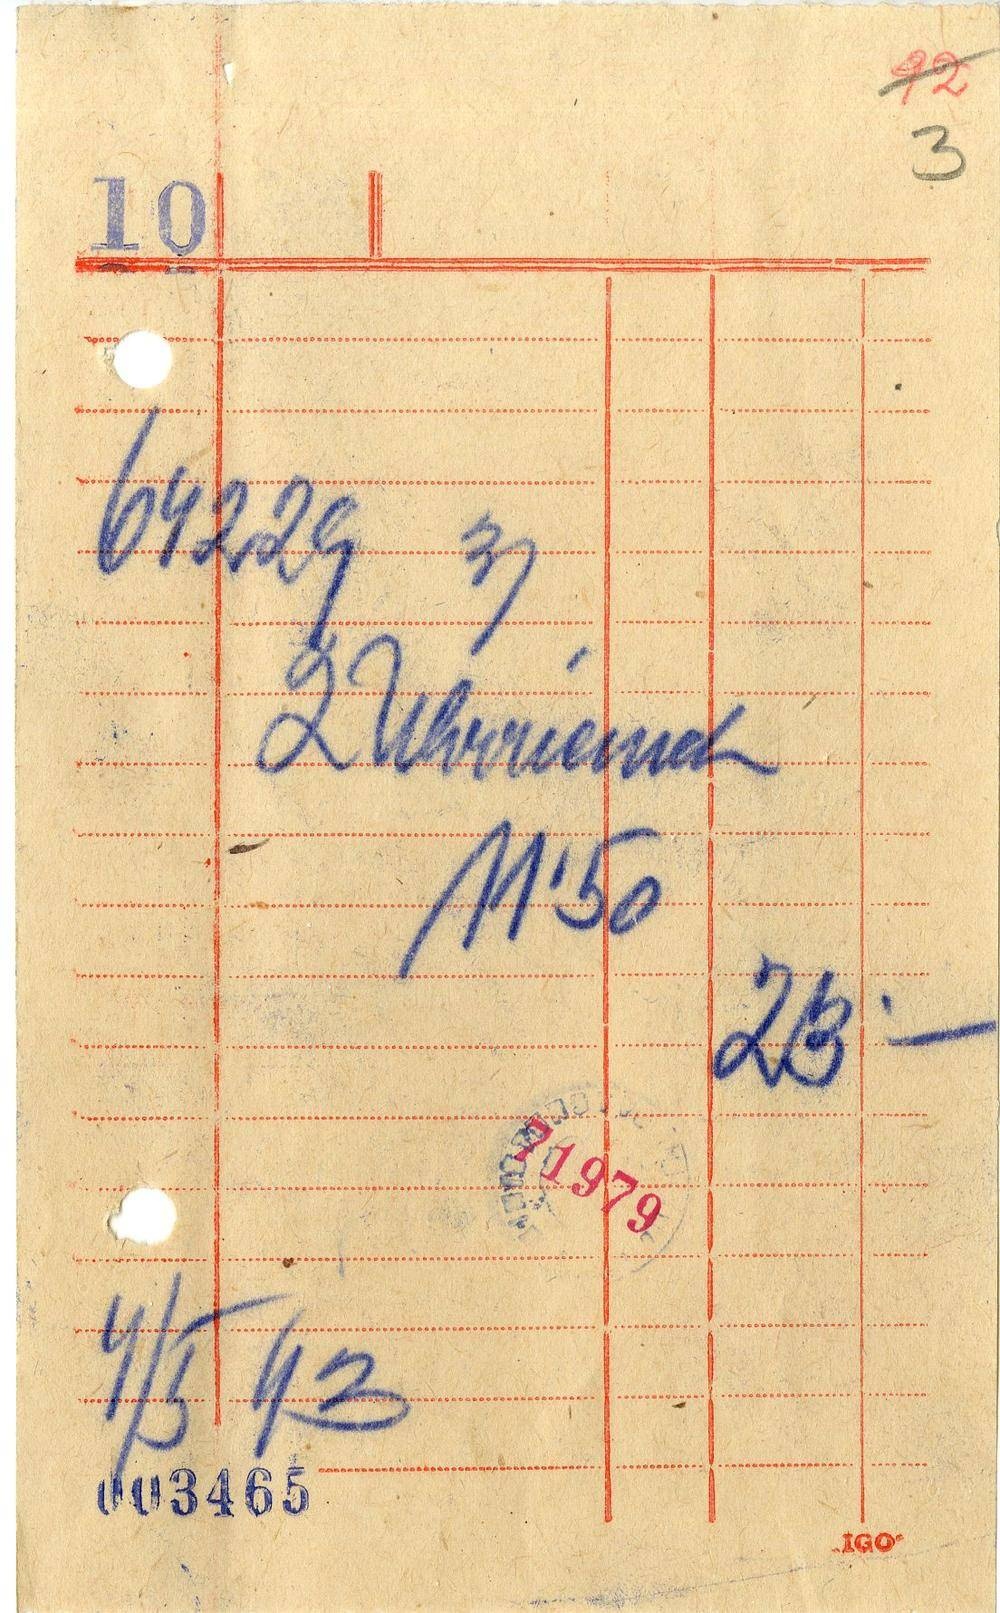 92
3
10
64229 3)
2 Uhrriemen
11'50
23·—
71979
4/5 43
003465
IGO